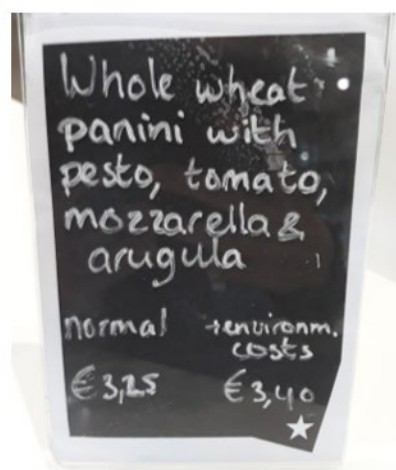 Whole wheat
panini with
pesto, tomato,
mozzarella &
arugula
normal +environm.
costs
€3,25 €3,40